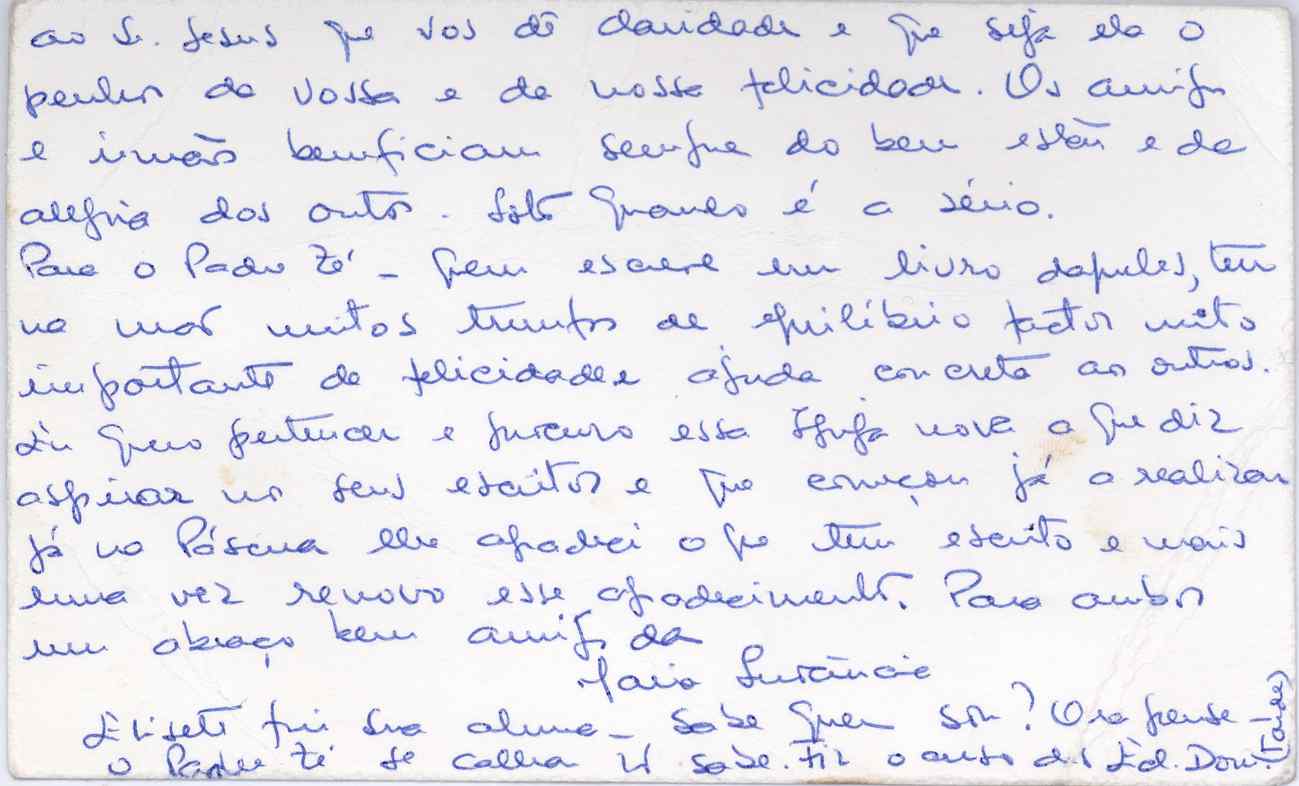 ao Sr. Jesus que vos dê claridade e que seja ela o
penhor da vossa e da nossa felicidade. Os amigos
e irmãos beneficiam sempre do bem estar e da
alegria dos outros. Isto quando é a sério.
Para o Padre Zé – Quem escreve um livro daqueles, tem
na mão muitos trunfos de equilíbrio factor muito
importante de felicidade e ajuda concreta aos outros.
Eu quero pertencer e procuro essa Igreja nova a que diz
aspirar nos seus escritos e que começou já a realizar
já na Páscoa lhe agradeci o que tem escrito e mais
uma vez renovo esse agradecimento. Para ambos
um abraço bem amigo da
Maria
Elisete fui sua aluna – sabe quem sou? Ora pense –
o Padre Zé se calhar já sabe. Fiz o curso de Ed. Dom.